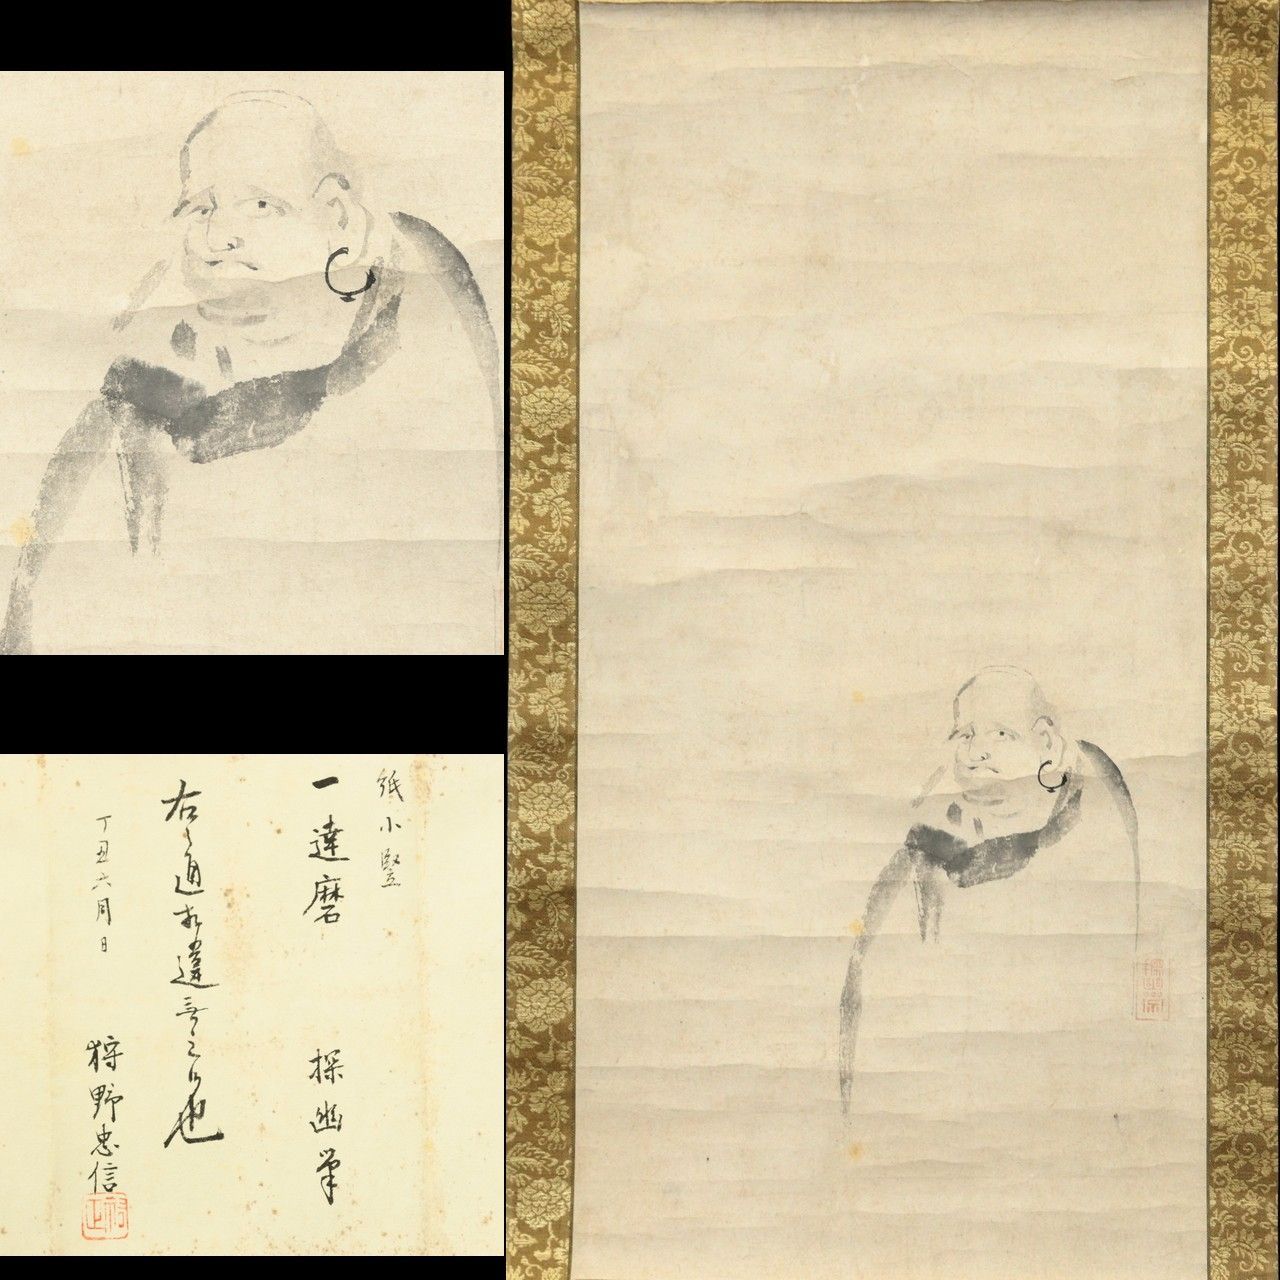 紙小竪
一達磨 探幽筆
右之通相違無之候也
丁丑六月日
狩野忠信